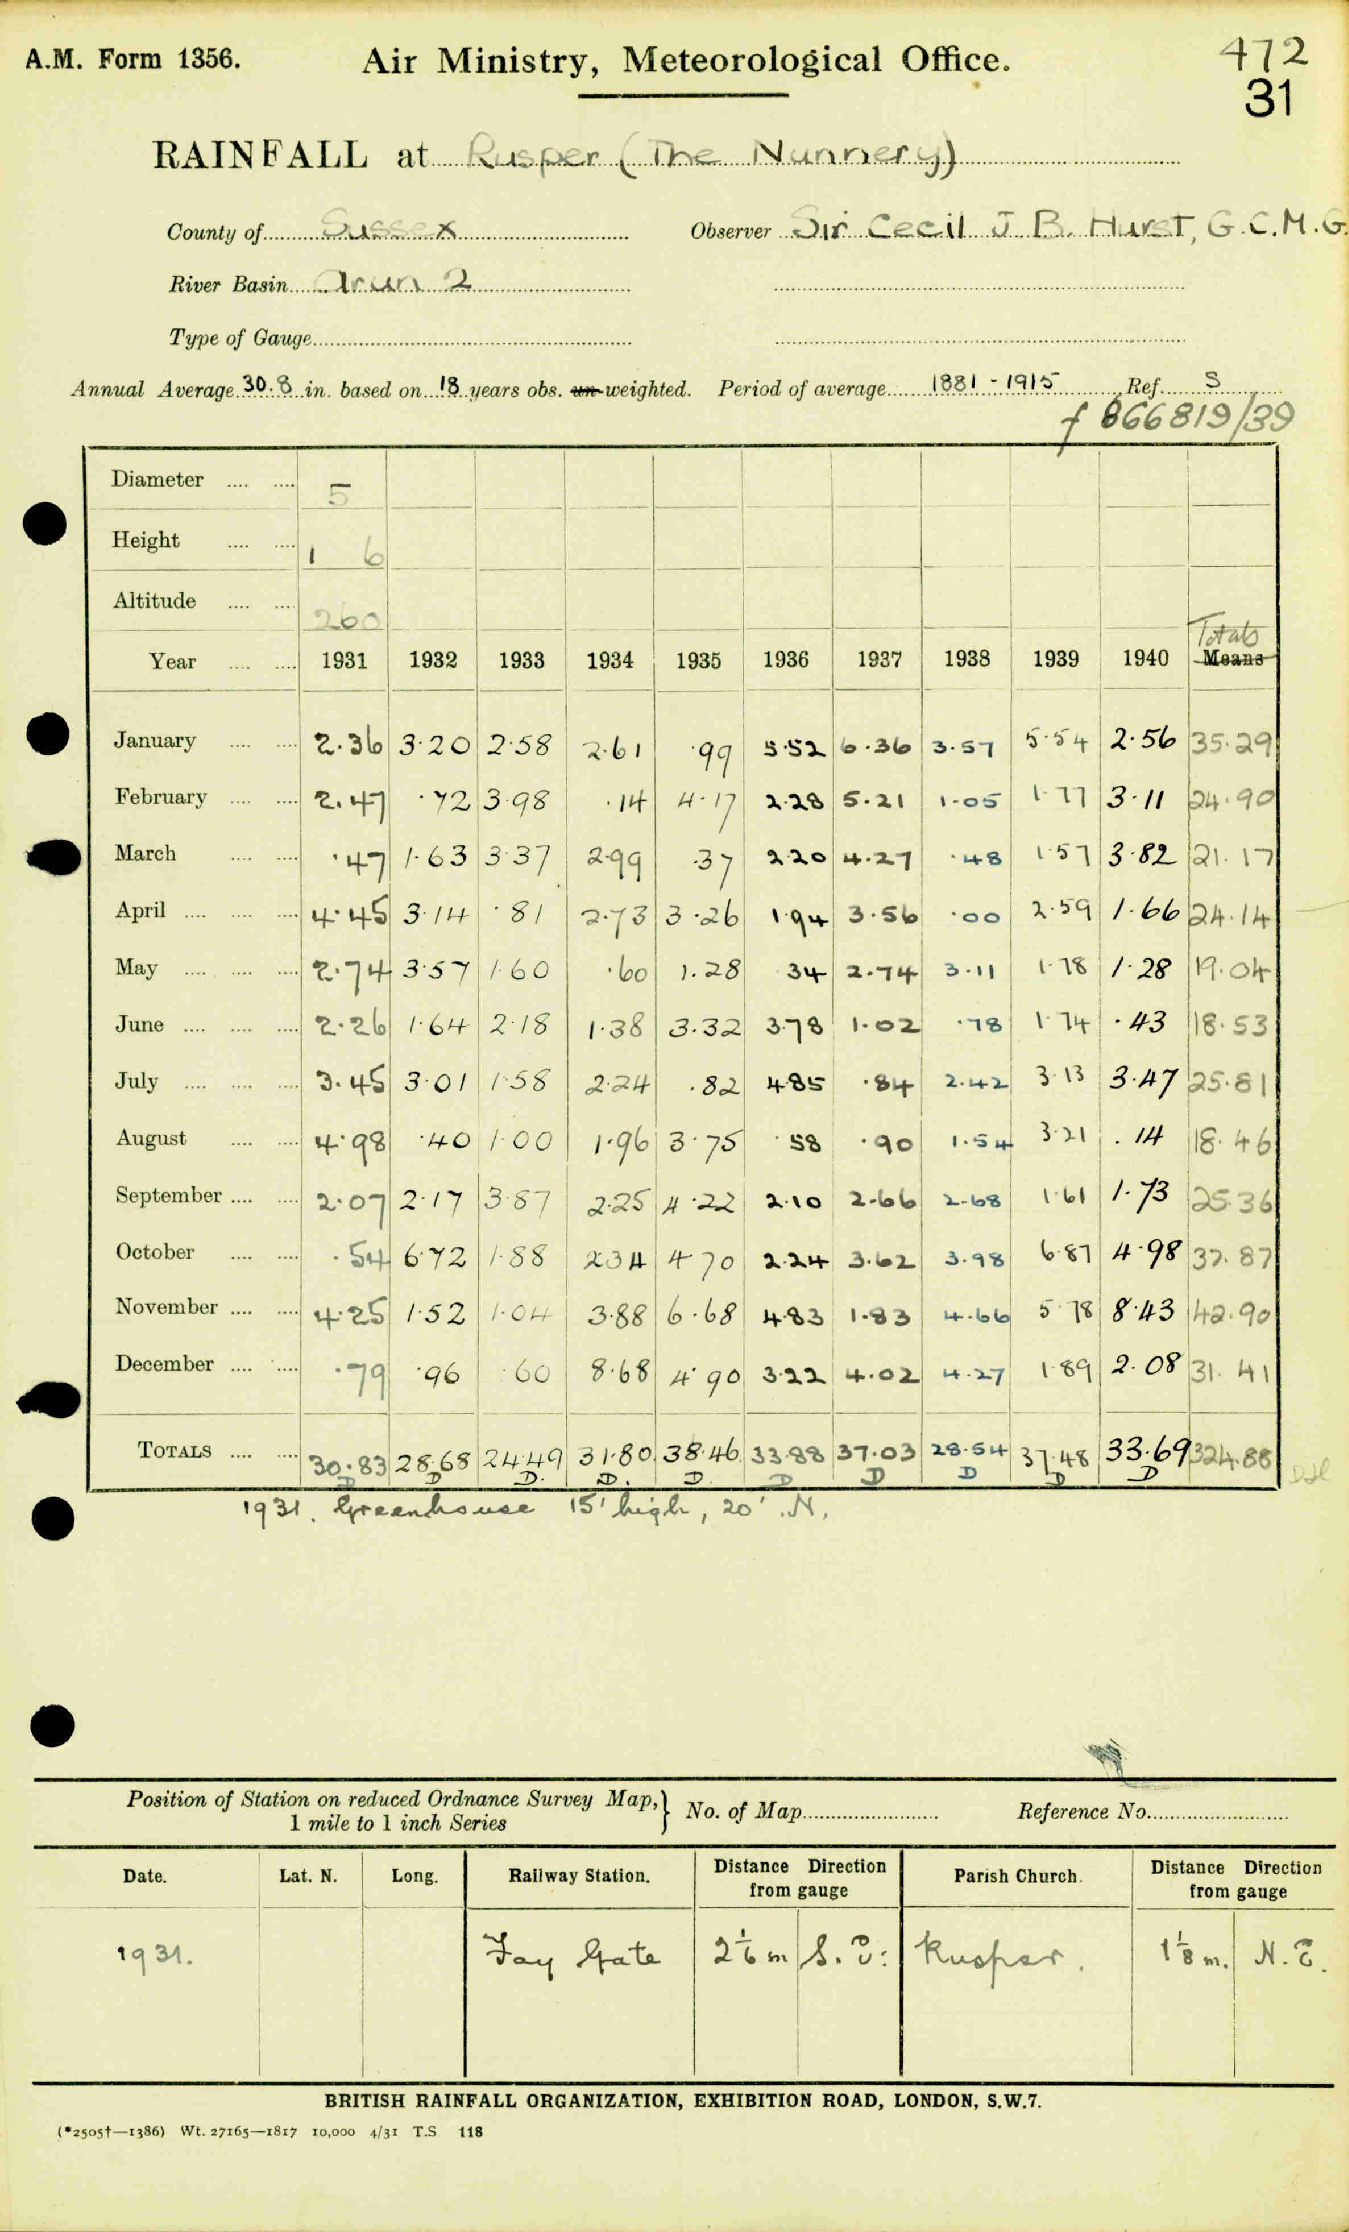 A.M. Form 1356.
Air Ministry, Meteorological Office.
472
31
RAINFALL at Rusper (The Nunnery)
County of Sussex Observer Sir Cecil J B. Hurst, G.C.M.G.
River Basin Arun 2
Type of Gauge
Annual Average 30.8 in. based on 18 years obs. un-weighted. Period of average 1881 - 1915 Ref. S
f 866819/39
Diameter 5
Height 1 6
Altitude 260
Totals
Year 1931 1932 1933 1934 1935 1936 1937 1938 1939 1940 Means
January 2.36 3.20 2.58 2.61 .99 5.52 6.36 3.57 5.54 2.56 35.29
February 2.47 .72 3.98 .14 4.17 2.28 5.21 1.05 1.77 3.11 24.90
March .47 1.63 3.37 2.99 .37 2.20 4.27 .48 1.57 3.82 21.17
April 4.45 3.14 .81 2.73 3.26 1.94 3.56 .00 2.59 1.66 24.14
May 2.74 3.57 1.60 .60 1.28 34 2.74 3.11 1.78 1.28 19.04
June 2.26 1.64 2.18 1.38 3.32 3.78 1.02 .78 1.74 .43 18.53
July 3.45 3.01 1.58 2.24 .82 4.85 .84 2.42 3.13 3.47 25.81
August 4.98 .40 1.00 1.96 3.75 .58 .90 1.54 3.21 .14 18.46
September 2.07 2.17 3.87 2.25 4.22 2.10 2.66 2.68 1.61 1.73 25.36
October .54 6.72 1.88 2.34 4.70 2.24 3.62 3.98 6.87 4.98 37.87
November 4.25 1.52 1.04 3.88 6.68 4.83 1.83 4.66 5.78 8.43 42.90
December .79 .96 .60 8.68 4.90 3.22 4.02 4.27 1.89 2.08 31.41
TOTALS 30.83 28.68 24.49 31.80 38.46 33.88 37.03 28.54 37.48 33.69 324.88
D D D. D. D. D D D D D
1931. Greenhouse 15' high, 20' N.
Position of Station on reduced Ordnance Survey Map, 1 mile to 1 inch Series } No. of Map Reference No.
Date. Lat. N. Long. Railway Station. Distance Direction from gauge Parish Church. Distance Direction from gauge
1931. Fay Gate 2 1/6 m S. E. Rusper. 1 1/8 m. N. E.
BRITISH RAINFALL ORGANIZATION, EXHIBITION ROAD, LONDON, S.W.7.
(*2505†—1386) Wt. 27165—1817 10,000 4/31 T.S 118